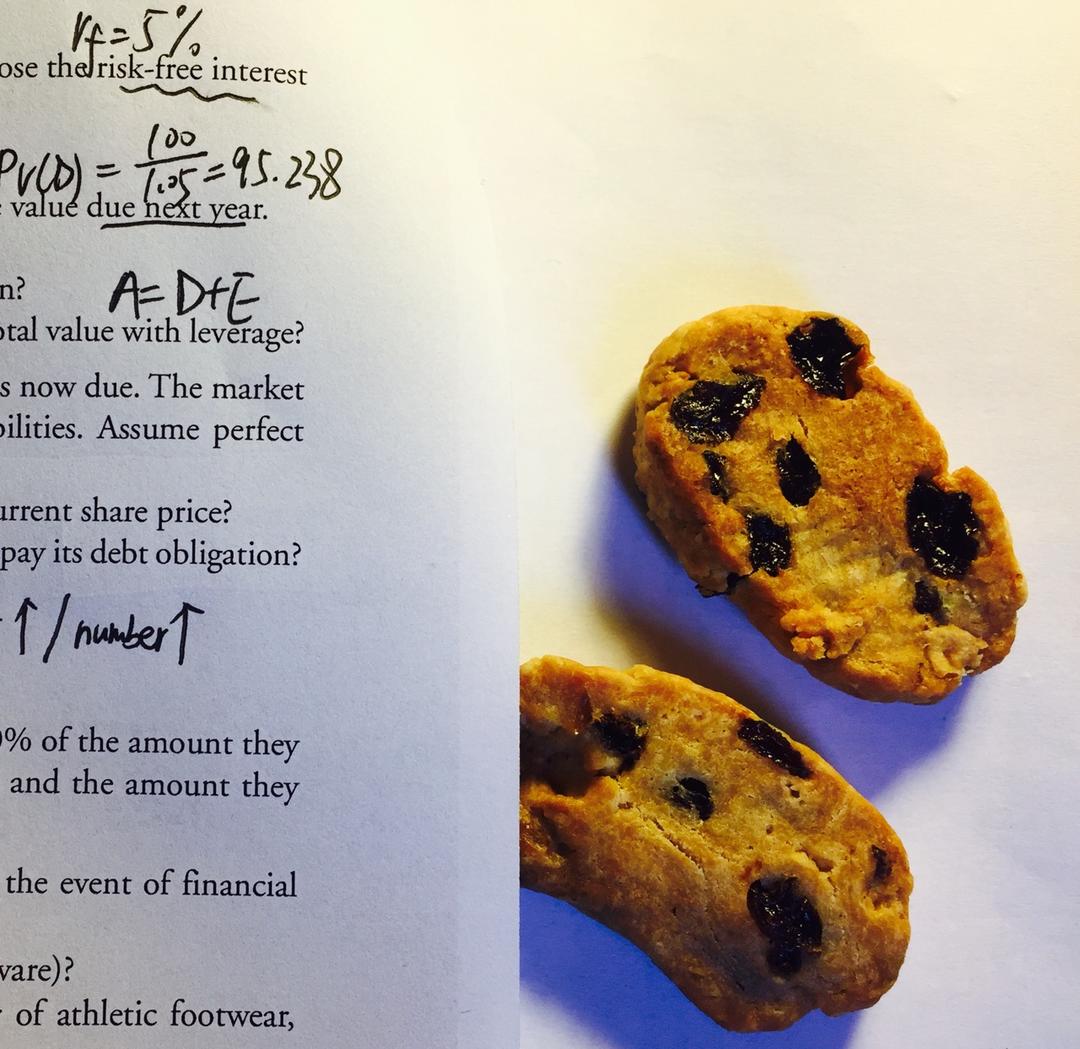 rf=5%
ose the risk-free interest
PV(D) = 100/1.05 = 95.238
value due next year.
n?
A=D+E
otal value with leverage?
s now due. The market
bilities. Assume perfect
urrent share price?
pay its debt obligation?
↑/number↑
0% of the amount they
and the amount they
the event of financial
ware)?
of athletic footwear,